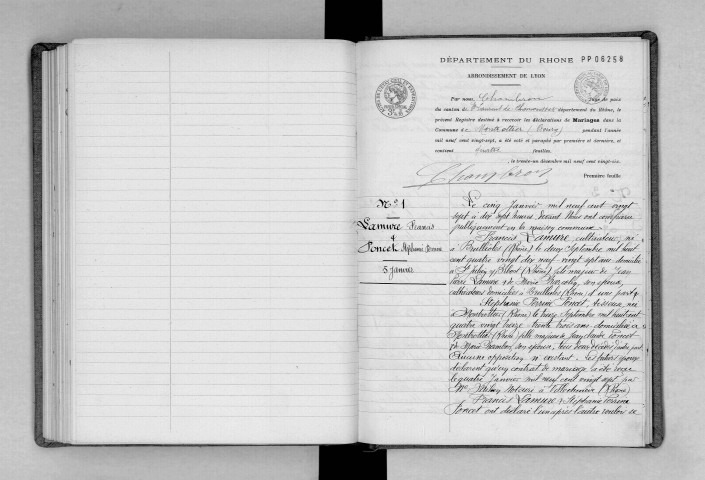 DÉPARTEMENT DU RHONE PP06258
ARRONDISSEMENT DE LYON
Par nous, Juge de paix
du canton de St Laurent de Chamousset département du Rhône, le
présent Registre destiné à recevoir les déclarations de Mariages dans la
Commune de Montrottier (Bourg) pendant l'année
mil neuf cent vingt-sept, a été coté et paraphé par première et dernière, et
contient quatre feuilles.
le trente-un décembre mil neuf cent vingt-six.
Première feuille
No 1
Lamure Francis
&
Poncet Stéphanie Perrine
5 janvier
Le cinq Janvier mil neuf cent vingt
sept à dix sept heures, devant Nous ont comparu
publiquement en la maison commune
Francis Lamure, cultivateur, né
à Brullioles (Rhône) le deux Septembre mil huit
cent quatre vingt dix neuf vingt sept ans domicilié
à (Rhône) fils majeur de Jean
Lamure & de Marie son épouse,
cultivateurs domiciliés à Brullioles (Rhône) d'une part &
Stéphanie Perrine Poncet, tisseuse, née
à Montrottier (Rhône) le Septembre mil huit cent
quatre vingt treize trente trois ans domiciliée à
Montrottier (Rhône) fille majeure de Jean Claude Poncet
& de Marie son épouse, tous deux décédés d'autre part
Aucune opposition n'existant. Les futurs époux
déclarent qu'un contrat de mariage a été reçu
le quatre Janvier mil neuf cent vingt sept par
Me Notaire à (Rhône)
Francis Lamure & Stéphanie Perrine
Poncet ont déclaré l'un après l'autre vouloir se